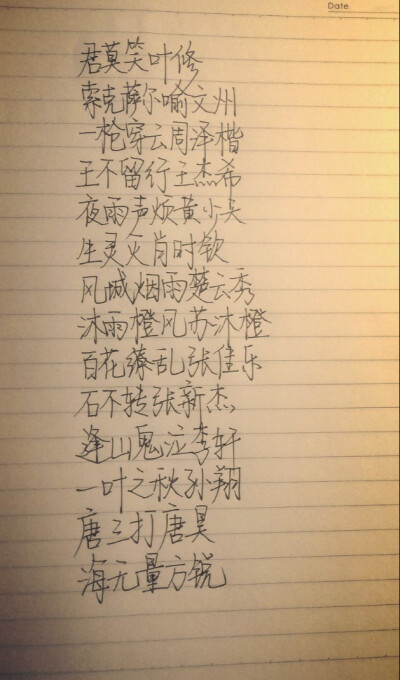 Date
君莫笑叶修
索克萨尔喻文州
一枪穿云周泽楷
王不留行王杰希
夜雨声烦黄少天
生灵灭肖时钦
风城烟雨楚云秀
沐雨橙风苏沐橙
百花缭乱张佳乐
石不转张新杰
逢山鬼泣李轩
一叶之秋孙翔
唐三打唐昊
海无量方锐